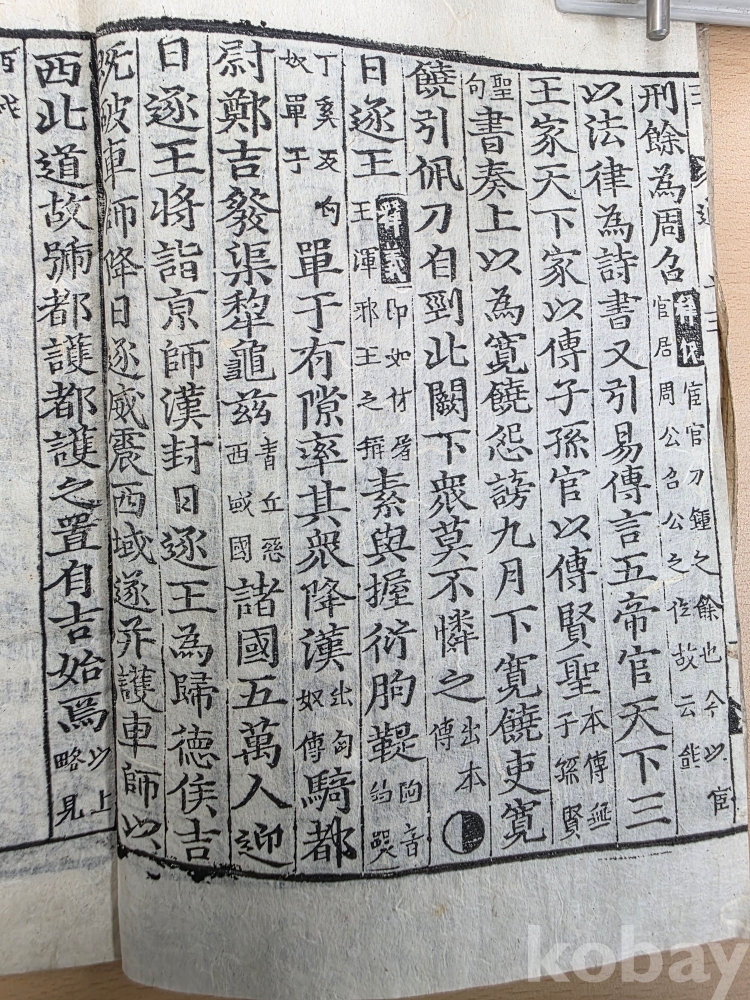 刑餘為周召釋義宦官刀鍾之餘也今以宦官居周公召公之位故云然
以法律為詩書又引易傳言五帝官天下三
王家天下家以傳子孫官以傳賢聖本傳延子孫賢
聖句書奏上以為寬饒怨謗九月下寬饒吏寬
饒引佩刀自剄北闕下衆莫不憐之出本傳
日逐王釋義即如休屠王渾邪王之稱素與握衍朐鞮朐音
丁奚反匈奴單于單于有隙率其衆降漢出匈奴傳騎都
尉鄭吉發渠犂龜茲音丘慈西域國諸國五萬人迎
日逐王將詣京師漢封日逐王為歸德侯吉
既破車師降日逐威震西域遂并護車師以
西北道故號都護都護之置自吉始焉以上略見
kobay